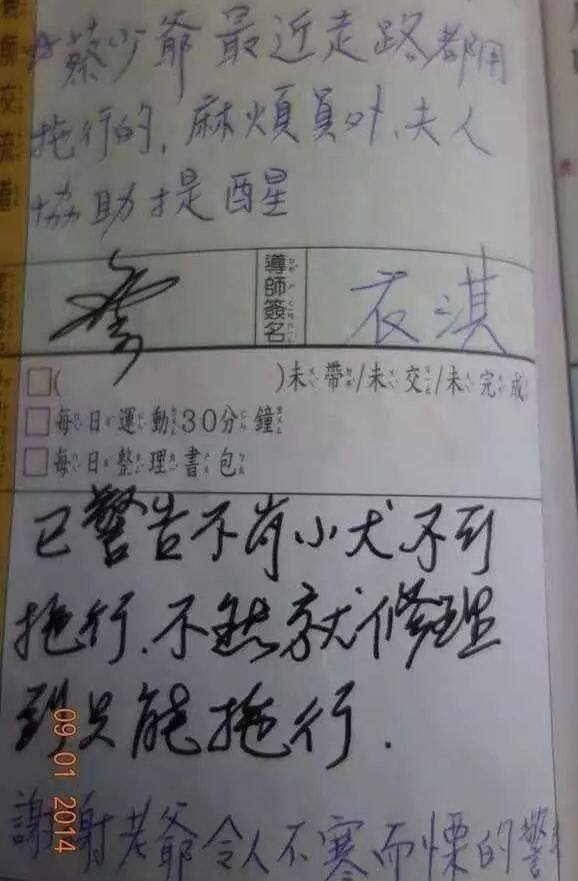 師交流道
☆蔡少爺最近走路都用
拖行的,麻煩員外、夫人
協助提醒
導師簽名
衣淇
□( )未帶/未交/未完成
□每日運動30分鐘
□每日整理書包
已警告不肖小犬不可
拖行.不然就修理
到只能拖行.
謝謝老爺令人不寒而慄的警
09 01 2014